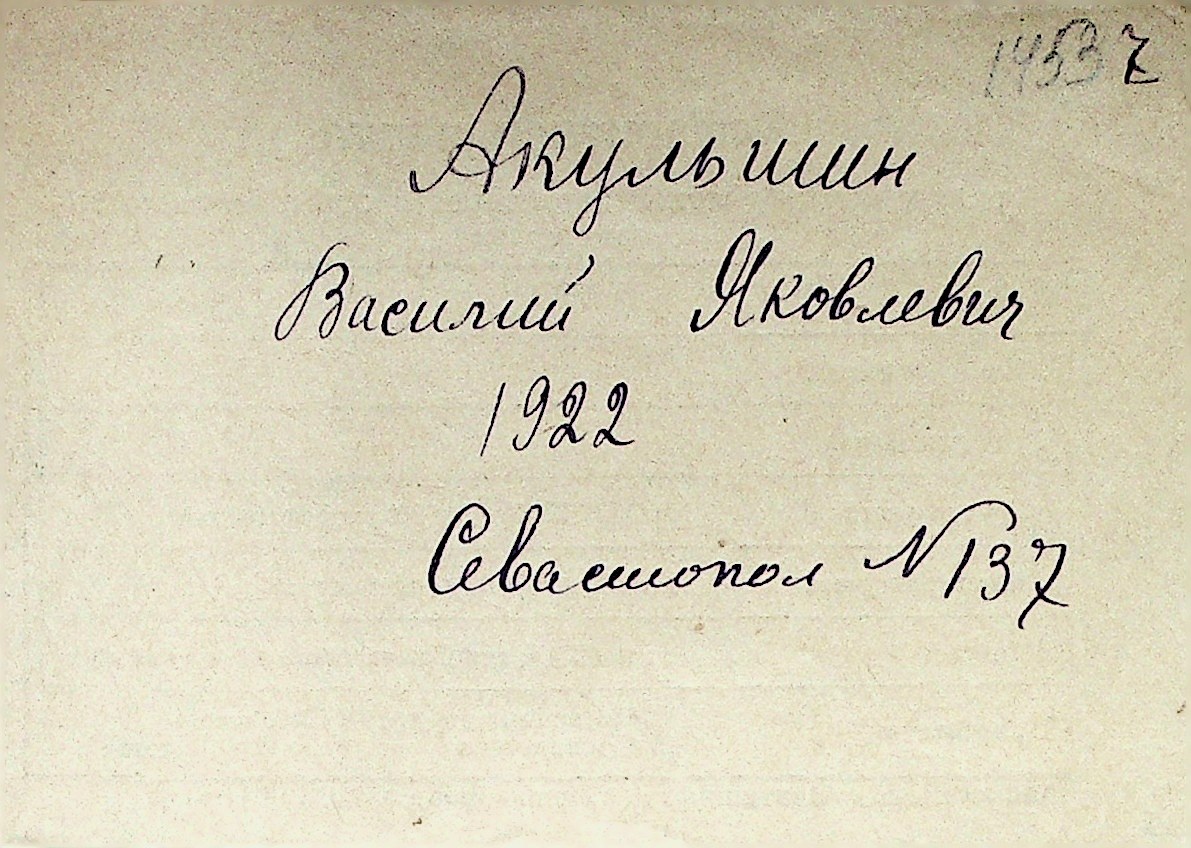 14537
Акульшин
Василий Яковлевич
1922
Севастопол N137